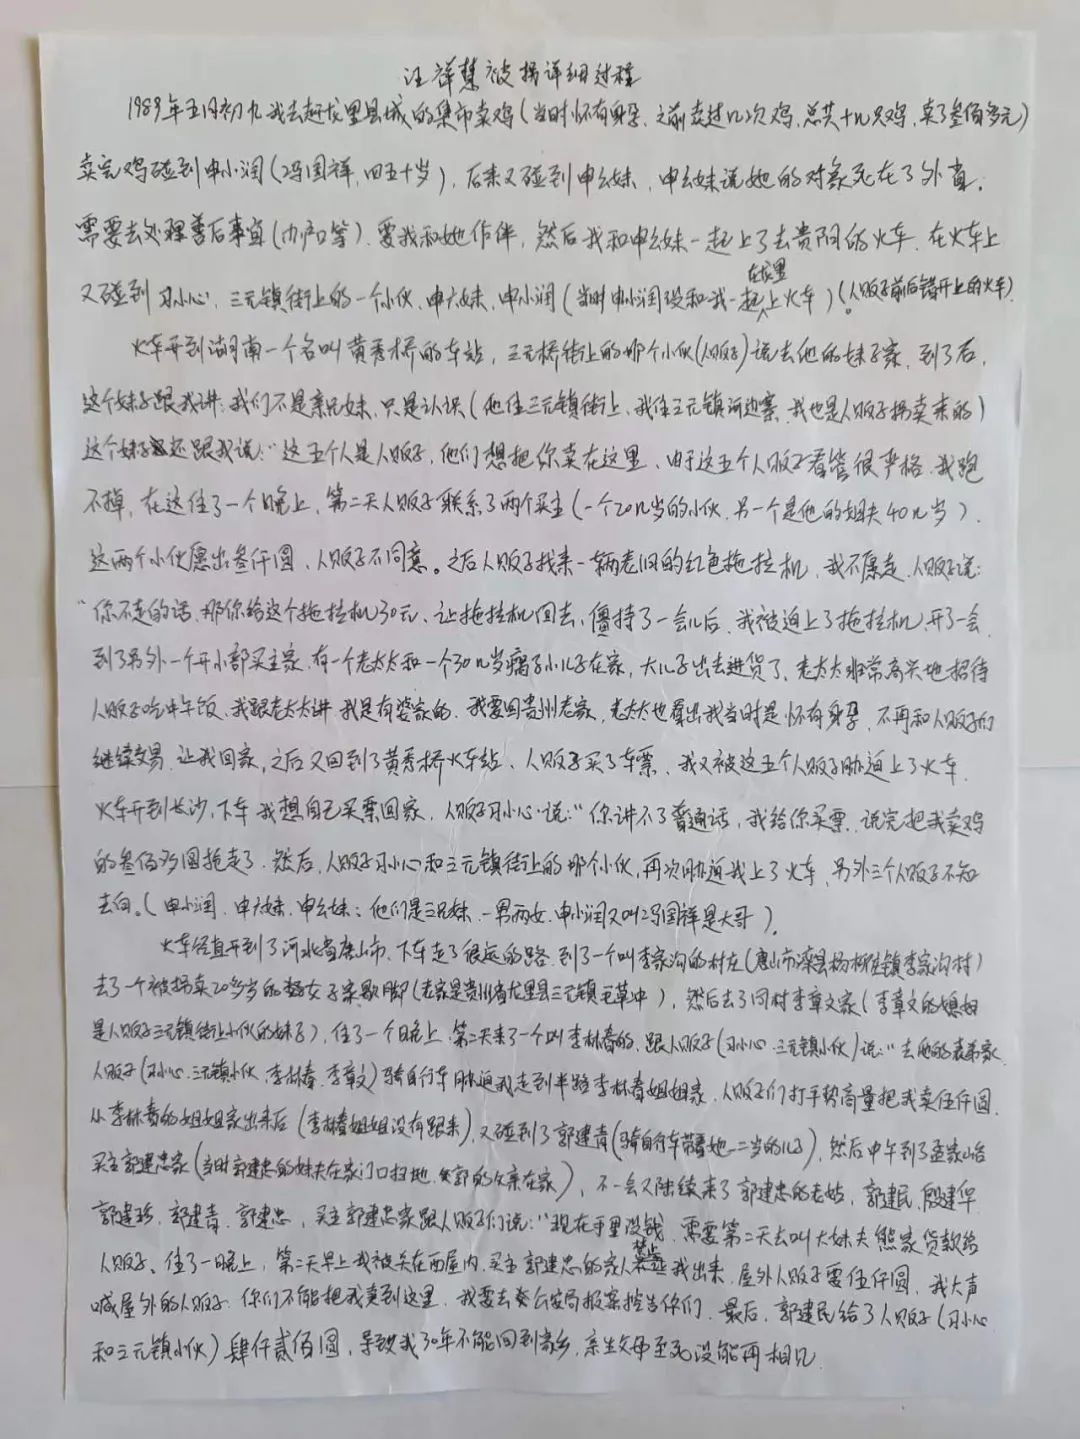 汪祥慧被拐详细过程
1989年五月初九我去赶龙里县城的集市卖鸡(当时怀有身孕,之前卖过几次鸡,总共十几只鸡,卖了叁佰多元)
卖完鸡碰到申小润(冯国祥,四五十岁),后来又碰到申幺妹,申幺妹说她的对象死在了外省,
需要去处理善后事宜(户口等),要我和她作伴,然后我和申幺妹一起上了去贵阳的火车,在火车上
又碰到刁小心、三元镇街上的一个小伙、申六妹、申小润(当时申小润没和我一起在龙里上火车)(人贩子前后错开上的火车)。
火车开到湖南一个名叫黄秀桥的车站,三元桥街上的那个小伙(人贩子)说去他的妹子家,到了后,
这个妹子跟我讲:我们不是亲兄妹、只是认识(他住三元镇街上、我住三元镇河边寨、我也是人贩子拐卖来的)
这个妹子还跟我说:"这五个人是人贩子,他们想把你卖在这里、由于这五个人贩子看管很严格,我跑
不掉,在这住了一个晚上,第二天人贩子联系了两个买主(一个20几岁的小伙、另一个是他的姐夫40几岁),
这两个小伙愿出叁仟圆、人贩子不同意。之后人贩子找来一辆老旧的红色拖拉机,我不愿走,人贩子说:
"你不走的话、那你给这个拖拉机30元、让拖拉机回去,僵持了一会儿后,我被迫上了拖拉机,开了一会
到了另外一个开小部买主家,有一个老太太和一个30几岁瘸子小儿子在家,大儿子出去进货了、老太太非常高兴地招待
人贩子吃中午饭、我跟老太太讲,我是有婆家的,我要回贵州老家,老太太也看出我当时是怀有身孕,不再和人贩子们
继续交易,让我回家,之后又回到了黄秀桥火车站、人贩子买了车票,我又被这五个人贩子胁迫上了火车,
火车开到长沙,下车,我想自己买票回家,人贩子刁小心说:"你讲不了普通话,我给你买票,说完把我卖鸡
的叁佰多圆抢走了,然后,人贩子刁小心和三元镇街上的那个小伙,再次胁迫我上了火车,另外三个人贩子不知
去向。(申小润、申六妹、申幺妹:他们是三兄妹、一男两女,申小润又叫冯国祥是大哥)。
火车径直开到了河北省唐山市、下车走了很远的路,到了一个叫李家沟的村庄(唐山市滦县杨柳庄镇李家沟村)
去了一个被拐卖20多岁的女子家歇脚(老家是贵州省龙里县三元镇毛草冲),然后去了同村李章文家(李章文的媳妇
是人贩子三元镇街上小伙的妹子),住了一个晚上,第二天来了一个叫李林春的,跟人贩子(刁小心、三元镇小伙)说:"去他的表弟家
人贩子(刁小心、三元镇小伙、李林春、李章文)骑自行车胁迫我走到半路李林春姐姐家,人贩子们打手势商量把我卖伍仟圆,
从李林春的姐姐家出来后(李林春姐姐没有跟来),又碰到了郭建青(骑自行车带着她一二岁的儿子),然后中午到了孟家峪
买主郭建忠家(当时郭建忠的妹夫在家门口扫地,郭的父亲在家),不一会又陆续来了郭建忠的老姑,郭建民、殷建华
郭建珍、郭建青、郭建忠,买主郭建忠家跟人贩子们说:"现在手里没钱,需要第二天去叫大妹夫熊家贷款给
人贩子、住了一晚上,第二天早上我被关在西屋内,买主郭建忠的家人禁止我出来,屋外人贩子要伍仟圆,我大声
喊屋外的人贩子,你们不能把我卖到这里,我要去公安局报案控告你们,最后,郭建民给了人贩子(刁小心
和三元镇小伙)肆仟贰佰圆,导致我30年不能回到家乡,亲生父母至死没能再相见.